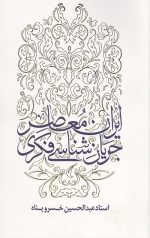 جریان‌شناسی فکری
ایران معاصر
استاد عبدالحسین خسروپناه